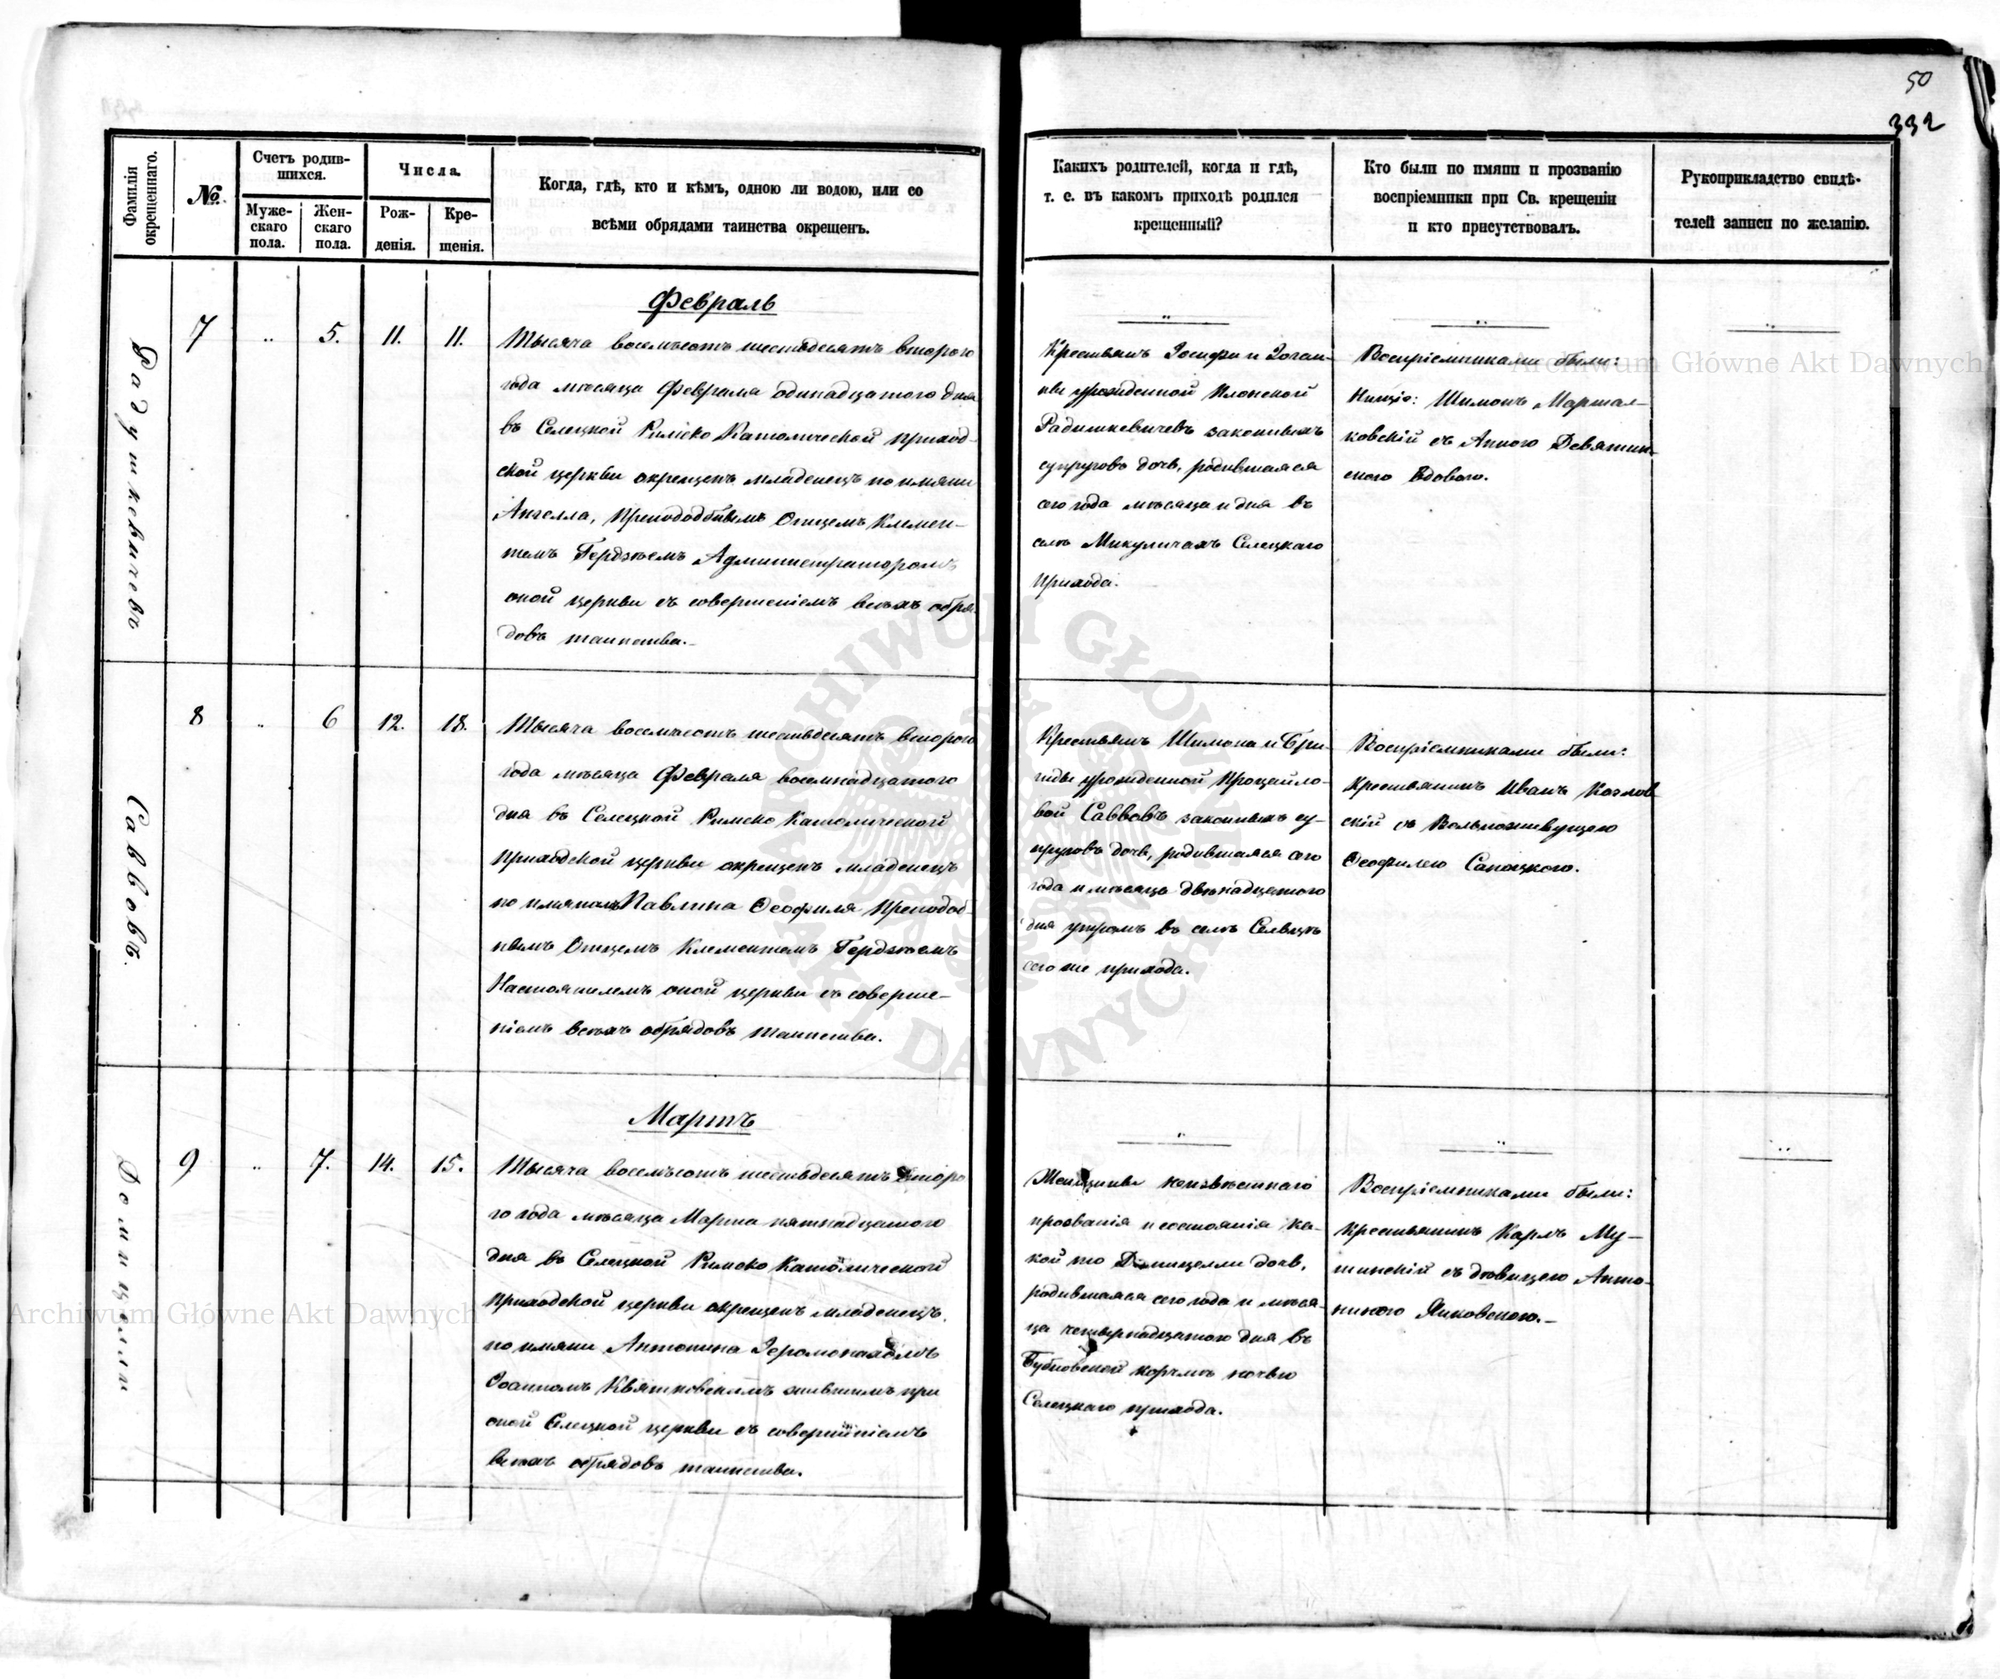 50
332
Фамилія
окрещеннаго.
№.
Счетъ родив-
шихся.
Муже-
скаго
пола.
Жен-
скаго
пола.
Числа.
Рож-
денія.
Кре-
щенія.
Когда, гдѣ, кто и кѣмъ, одною ли водою, или со
всѣми обрядами таинства окрещенъ.
Какихъ родителей, когда и гдѣ,
т. е. въ какомъ приходѣ родился
крещенный?
Кто были по имяни и прозванію
воспріемники при Св. крещеніи
и кто присутствовалъ.
Рукоприкладство свидѣ-
телей записи по желанію.
Радушкевичевъ
7
5.
11.
11.
Февраль
Тысяча восемьсотъ шестьдесятъ втораго
года мѣсяца Февраля одинадцатого дня
въ Селецкой Римско Католической приход-
ской церкви окрещенъ младенецъ по имяни
Ангелла, Преподобнымъ Отцемъ Клемен-
темъ Гердзѣемъ Администраторомъ
оной церкви съ совершеніемъ всѣхъ обря-
довъ таинства.
Крестьянъ Іосифа и Іоган-
ны урожденной
Радишкевичевъ законныхъ
супруговъ дочь, родившаяся
сего года мѣсяца и дня въ
селѣ Микуличахъ Селецкаго
прихода.
Воспріемниками были:
Шимонъ Маршал-
ковскій съ Анною Девятин-
ского вдовою.
Саввовъ.
8
6
12.
18.
Тысяча восемьсотъ шестьдесятъ втораго
года мѣсяца Февраля восемнадцатого
дня въ Селецкой Римско Католической
приходской церкви окрещенъ младенецъ
по имянамъ Павлина Ѳеофиля Преподоб-
нымъ Отцемъ Клементемъ Гердзѣемъ
Настоятелемъ оной церкви съ соверше-
ніемъ всѣхъ обрядовъ таинства.
Крестьянъ Шимона и Бри-
гиды урожденной Процайло-
вой Саввовъ законныхъ су-
пруговъ дочь, родившаяся сего
года и мѣсяца двѣнадцатого
дня утромъ въ селѣ Сельцѣ
сего же прихода.
Воспріемниками были:
Крестьянинъ Иванъ Козлов-
скій съ Вольноживущею
Ѳеофилею Сапоцкого.
Домицелли
9
7.
14.
15.
Мартъ
Тысяча восемьсотъ шестьдесятъ второ
го года мѣсяца Марта пятнадцатого
дня въ Селецкой Римско Католической
приходской церкви окрещенъ младенецъ
по имяни Антонина Іеромонахомъ
Іоанномъ Квятковскимъ жившимъ при
оной Селецкой церкви съ совершеніемъ
всѣхъ обрядовъ таинства.
Женщины неизвѣстнаго
прозванія и состоянія ка-
кой то Домицелли дочь,
родившаяся сего года и мѣся-
ца четвернадцатого дня въ
Бубновской корчмѣ ночью
Селецкаго прихода.
Воспріемниками были:
Крестьянинъ Карлъ Му-
шинскій съ дѣвицею Анто-
ниною Янковскою.
Archiwum Główne Akt Dawnych
Archiwum Główne Akt Dawnych
ARCHIWUM GŁÓWNE AKT DAWNYCH